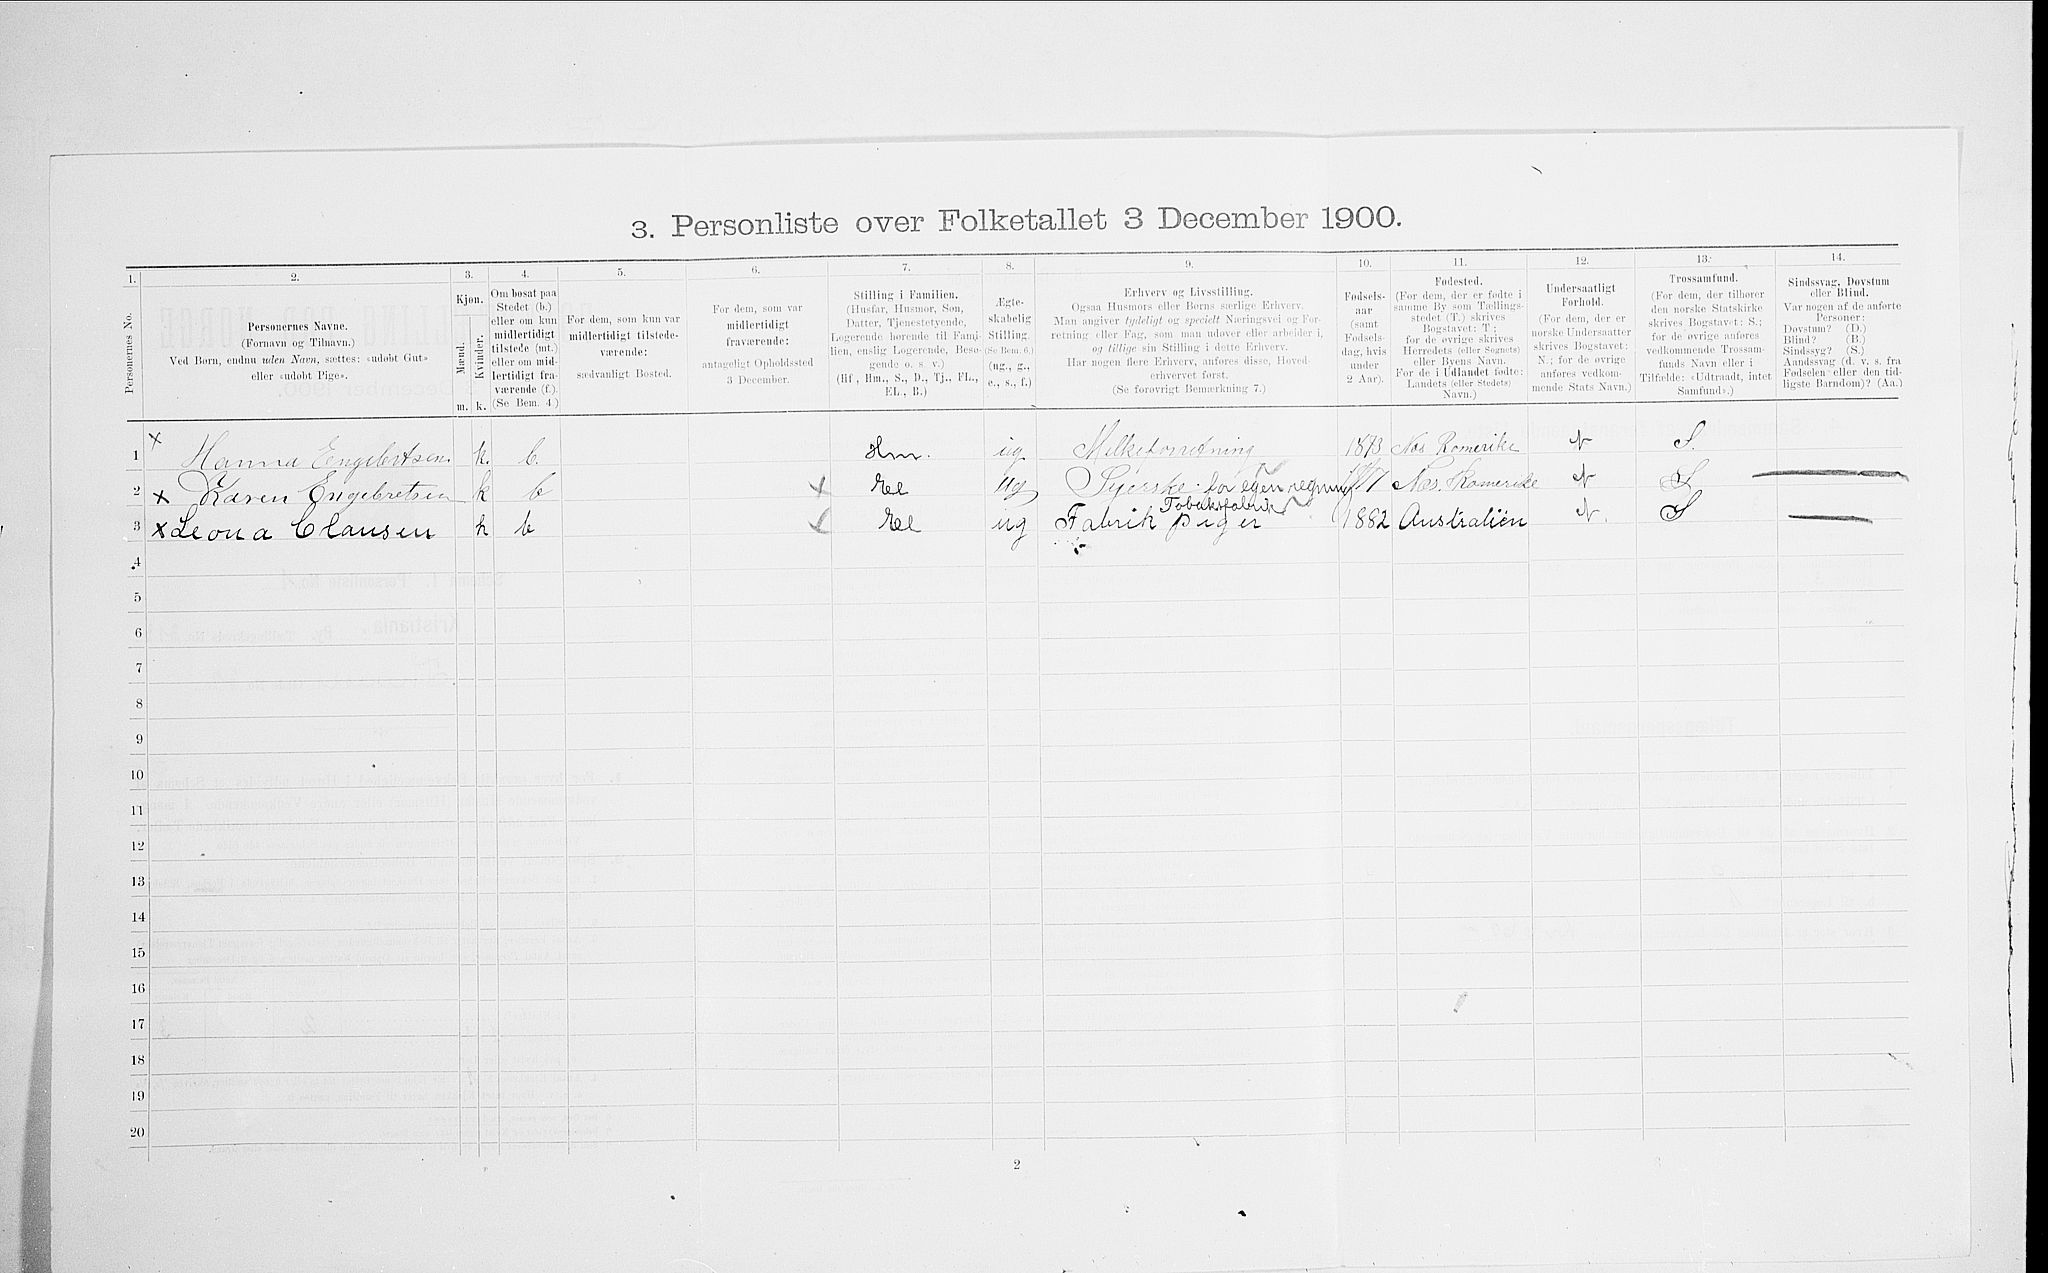 3. Personliste over Folketallet 3 December 1900.
1. 2. 3. 4. 5. 6. 7. 8. 9. 10. 11. 12. 13. 14.
Personernes No.
Personernes Navne.
(Fornavn og Tilnavn.)
Ved Børn, endnu uden Navn, sættes: «udøbt Gut»
eller «udøbt Pige».
Kjøn.
Mænd.
Kvinder.
m. k.
Om bosat paa
Stedet (b.)
eller om kun
midlertidigt
tilstede (mt.)
eller om mid-
lertidigt fra-
værende (f.).
(Se Bem. 4.)
For dem, som kun var
midlertidigt tilstede-
værende:
sædvanligt Bosted.
For dem, som var
midlertidigt
fraværende:
antageligt Opholdssted
3 December.
Stilling i Familien.
(Husfar, Husmor, Søn,
Datter, Tjenestetyende,
Logerende hørende til Fami-
lien, enslig Logerende, Besø-
gende o. s. v.)
(Hf., Hm., S., D., Tj., FL.,
EL., B.)
Ægte-
skabelig
Stilling.
(Se Bem. 6.)
(ug., g.,
e., s., f.)
Erhverv og Livsstilling.
Ogsaa Husmors eller Børns særlige Erhverv.
Man angiver tydeligt og specielt Næringsvei og For-
retning eller Fag, som man udøver eller arbeider i,
og tillige sin Stilling i dette Erhverv.
Har nogen flere Erhverv, anføres disse, Hoved-
erhvervet først.
(Se forøvrigt Bemærkning 7.)
Fødsels-
aar
(samt
Fødsels-
dag, hvis
under
2 Aar).
Fødested.
(For dem, der er fødte i
samme By som Tællings-
stedet (T.) skrives
Bogstavet: T;
for de øvrige skrives
Herredets (eller Sognets)
eller Byens Navn.
For de i Udlandet fødte:
Landets (eller Stedets)
Navn.)
Undersaatligt
Forhold.
(For dem, der er
norske Undersaatter
skrives Bogstavet:
N.; for de øvrige
anføres vedkom-
mende Stats Navn.)
Trossamfund.
(For dem, der tilhører
den norske Statskirke
skrives Bogstavet: S.;
for de øvrige anføres
vedkommende Trossam-
funds Navn eller i
Tilfælde: «Udtraadt, intet
Samfund».)
Sindssvag, Døvstum
eller Blind.
Var nogen af de anførte
Personer:
Døvstum? (D.)
Blind? (B.)
Sindssyg? (S.)
Aandssvag (d. v. s. fra
Fødselen eller den tid-
ligste Barndom)? (Aa.)
1 x Hanna Engebretsen k. b. Hm. ug Milkeforretning 1873 Nes Romerike N S.
2 x Karen Engebretsen k b x el ug Syerske for egen regning Nes. Romerike N S
Tobaksfabrik
3 x Leona Clausen k b x el ug Fabrik piger 1882 Australien N. S
4
5
6
7
8
9
10
11
12
13
14
15
16
17
18
19
20
2